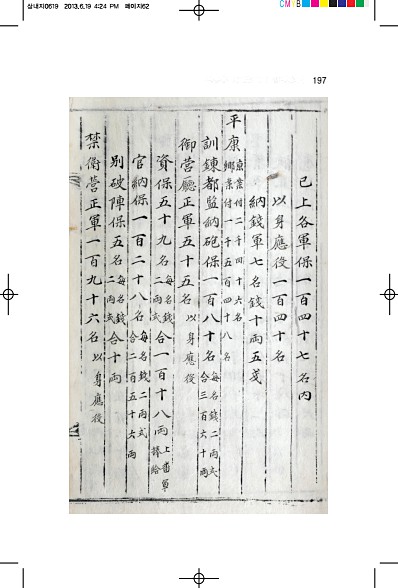 0619 2013.6.19 4:24 PM 페이지62
CMYB
197
已上各軍保一百四十七名內
以身應役一百四十名
納錢軍七名錢十兩五戔
平康 京案付二千四十六名
鄕案付一千五百四十八名
訓鍊都監納砲保一百八十名 每名錢二兩式
合三百六十兩
御營廳正軍五十五名 以身應役
資保五十九名 每名錢
二兩式 合一百十八兩 上番軍
捧給
官納保一百二十八名 每名錢二兩式
合二百五十六兩
別破陣保五名 每名錢
二兩式 合十兩
禁衛營正軍一百九十六名 以身應役